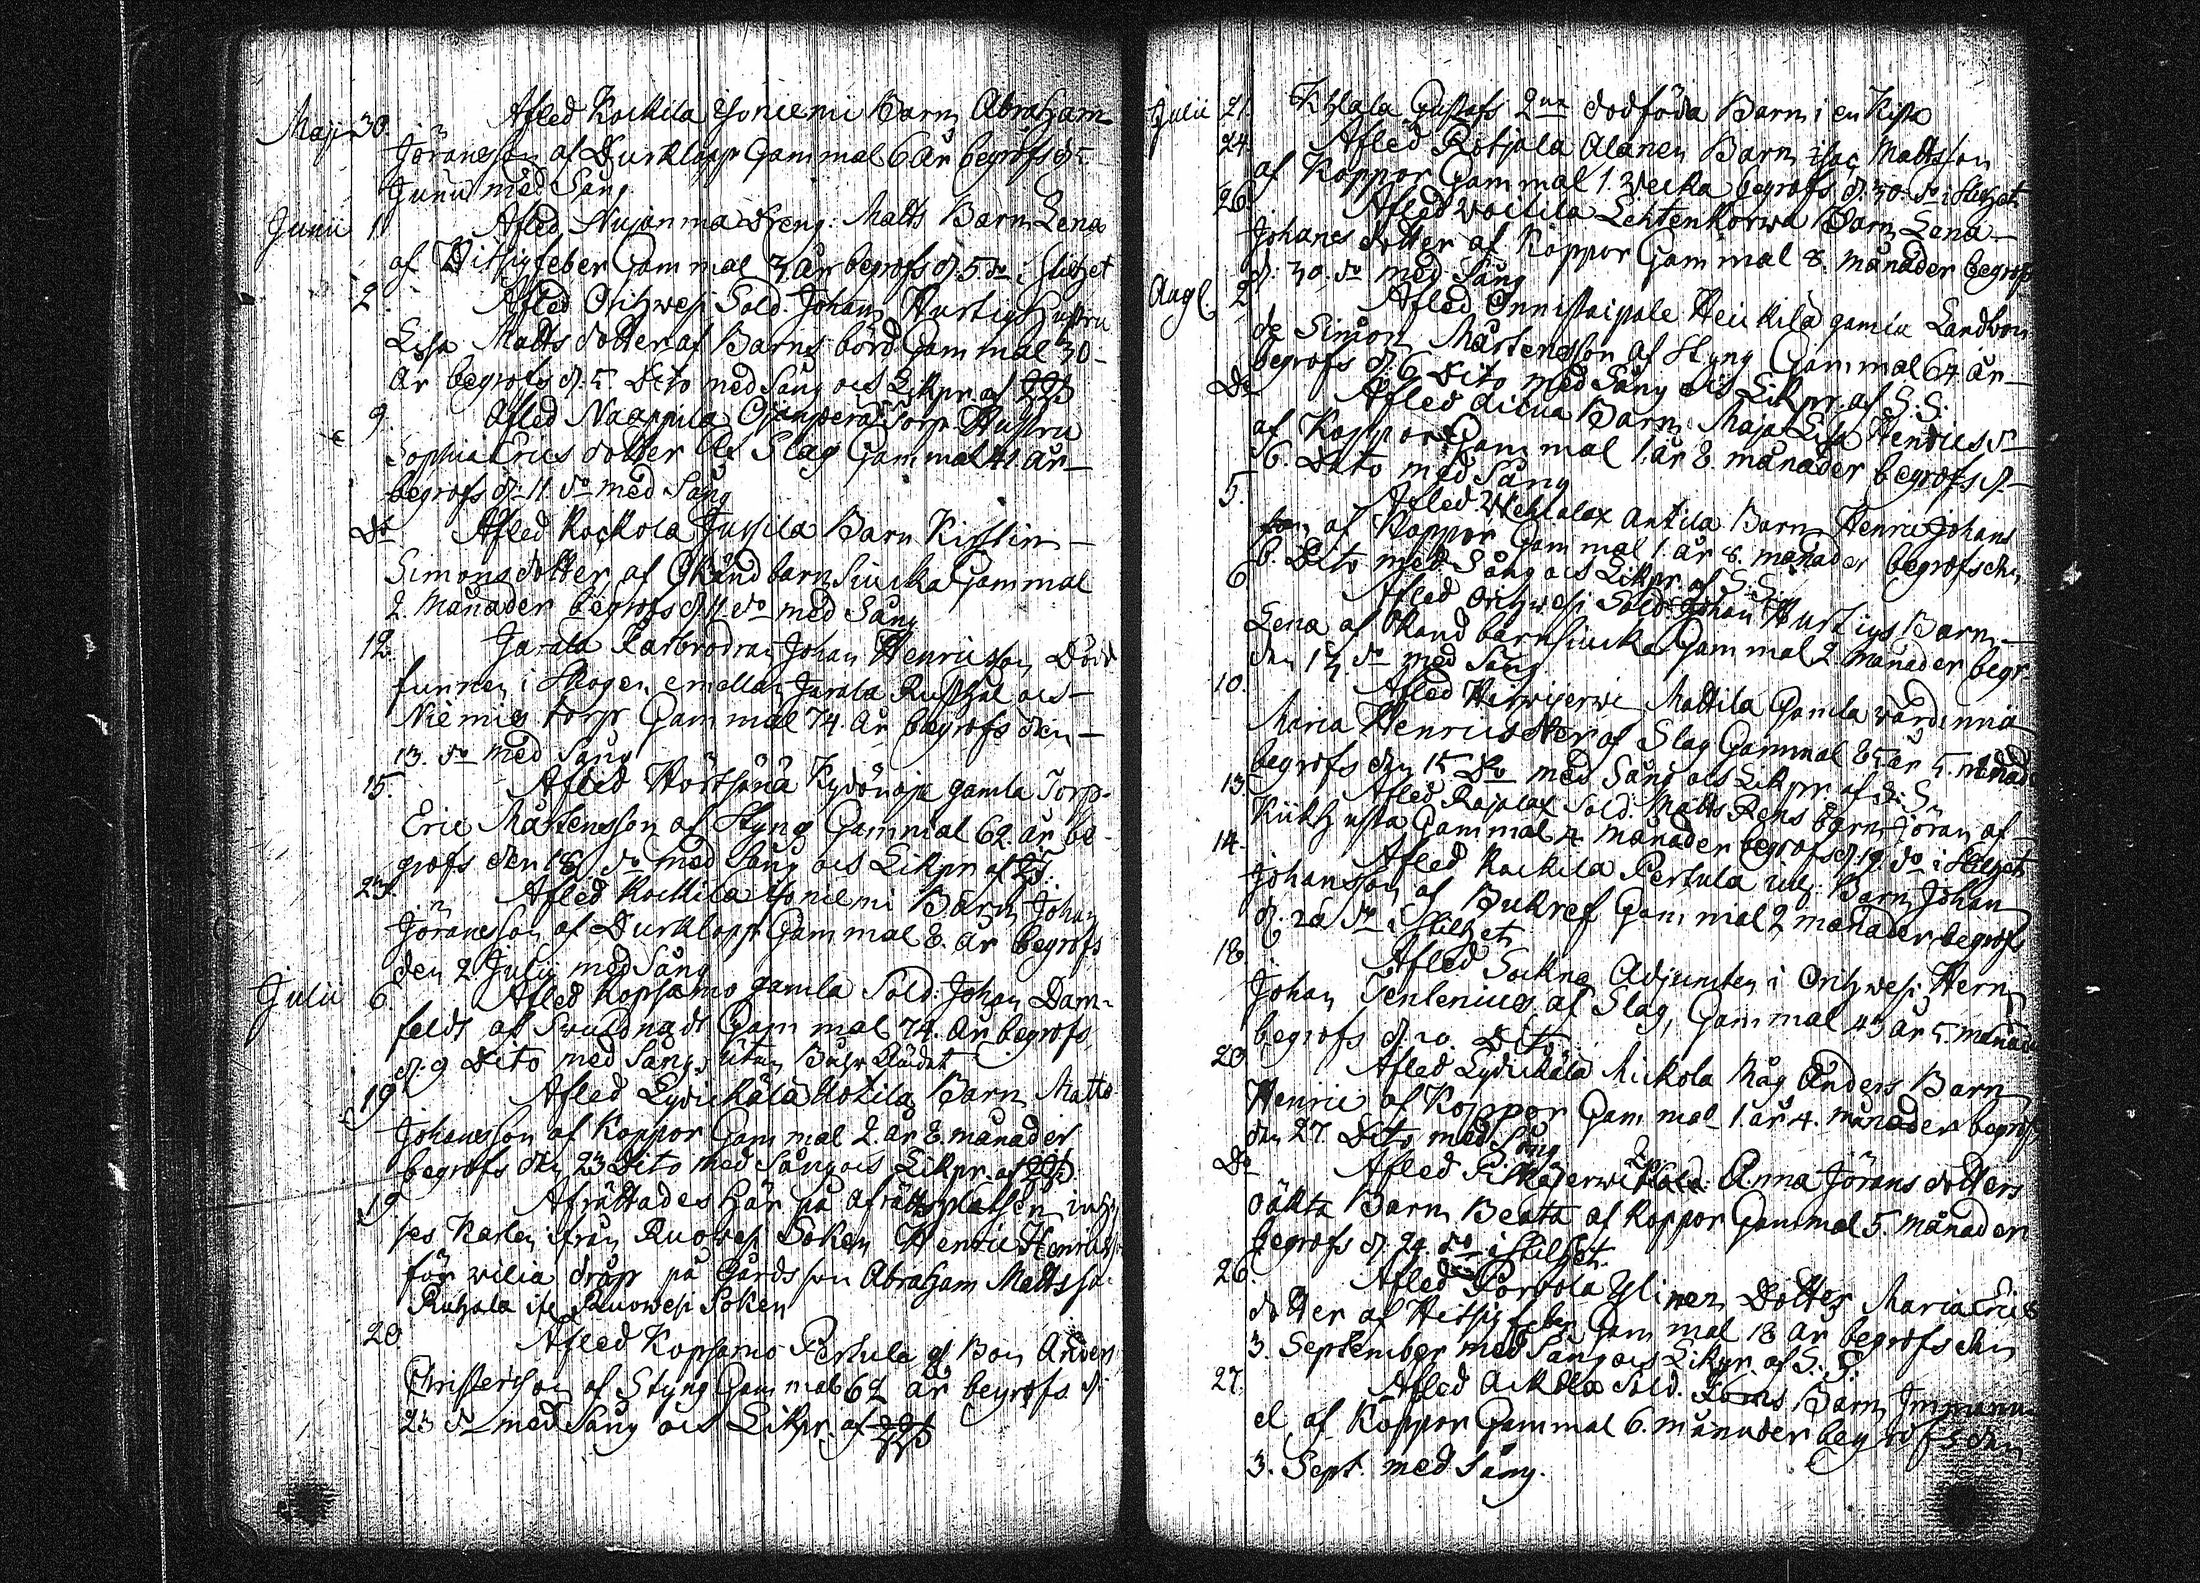 Maji 30. Afled Kockila Yoniemi Barn Abraham
Jöransson af Durklopp Gammal 6 år begrofs d:
Junii med Sång
Junii 1. Afled Dreng: Matts Barn Lena
af Hitsigfeber Gammal 3 år begrofs d. 5 do i Stilhet
2. Afled Orihwesi Sold. Johan Hurtigs Hustru
Lisa Matts dotter af Barns börd Gammal 30
år begrofs d: 5. Dito med Sång och Likpr. af
9. Afled Naappila Torp. Hustru
Sophia Erics dotter af Slag Gammal 41 år
begrofs d. 11. do med Sång
Do Afled Kockola Jussila Barn Kirstin
Simons dotter af Okänd barnsiucka Gammal
2. Månader begrofs d. 11. do med Sång
12. Jarala Karbrodran Johan Henricsson Död
funnen i Skogen emellan Jarala Rusthål och
Niemis torp Gammal 74. år begrofs den
13. do med Sång
15. Afled gamla Torp.
Eric Mårtensson af Styng Gammal 62. år be-
grofs den 18. do med Sång och Likpr. af
23. Afled Kockila Yoniemi Barn Johan
Jöransson af Durklopp Gammal 8. år begrofs
den 2 Julii med Sång
Julii 6. Afled Kopsamo gamla Sold: Johan Dam-
feldt af Gammal 74. år begrofs
d. 9 Dito med Sång, utan
19. Afled Lydickälä Uotila Barn Matts
Johansson af Koppor Gammal 2. år 8. månader
begrofs den 23 Dito med Sång och Likpr. af
19. Afrättades här på afrättsplatsen
Karlen ifrån Ruowesi Soken Henric
för wilia dråp på Gårds son Abraham Matts so
Ruhala ifr Ruowesi Soken
20. Afled Kopsamo Pertula Anders
Christersson af Styng Gammal 62 år begrofs d:
23 do med Sång och Likpr. af
Julii 21. Gustafs 2ne dödföda Barn i en Kista
24. Afled Alanen Barn Isac Mattsson
af Koppor Gammal 1. Wecka begrofs d. 30. do i Stilhet
26. Afled Woitila Lehtenkorwa Barn Lena
Johans dotter af Koppor Gammal 8. Månader begrofs
d: 30. do med Sång
Augl. 2. Afled Onnistaipale Heickilä gamla Landbon
de Simon Mårtensson af Styng Gammal 64 år
begrofs d. 6. Dito med Sång och Likpr. af S: S:
Do Afled Barn Maja Lisa Henrics dr
af Koppor Gammal 1. år 8. månader begrofs d:
6. Dito med Sång
5. Afled Wehkalax Antila Barn Henric Johans
son af Koppor Gammal 1. år 8. månader begrofs den
6. Dito med Sång och Likpr. af S. S.
6 Afled Orihwesi Sold: Johan Hurtigs Barn
Lena af Okänd barnsiucka Gammal 2 månader begr
den 13 do med Sång
10. Afled Hirwijerwi Mattila Gamla wärdinna
Maria Henricsdtter af Slag Gammal 85 år 5. månad
begrofs den 15 Do med Sång och Likpr. af S. S.
13. Afled Rajalax Sold. Matts Rens barn Jöran af
Kiikhosta Gammal 4 månader begrofs d. 19. do i Stilhet
14. Afled Kockila Pertula Barn Johan
Johansson af Bukref Gammal 2 månader begrofs
d. 20 do i Stilhet
18 Afled Sockne Adjuncten i Orihwesi Herr
Johan Tenlenius af Slag, Gammal 43 år 5. månad
begrofs d. 20. Dito
20 Afled Lydickälä Mickola Måg Anders Barn
Henric af Koppor Gammal 1. år 4. månader begrofs
den 27 Dito med Sång
Do Afled Anna Jörans dotters
oäkta Barn Beata af Koppor Gammal 5. månader
begrofs d. 24. do i Stilhet.
26. Afled Pörtola Ylinen Dotter Maria Erics
dotter af Hitsigfeber Gammal 18 år begrofs den
3. September med Sång och Likpr. af S. S.
27. Afled Sold. Barn Immanu
el af Koppor Gammal 6. månader begrofs den
3. Sept. med Sång.